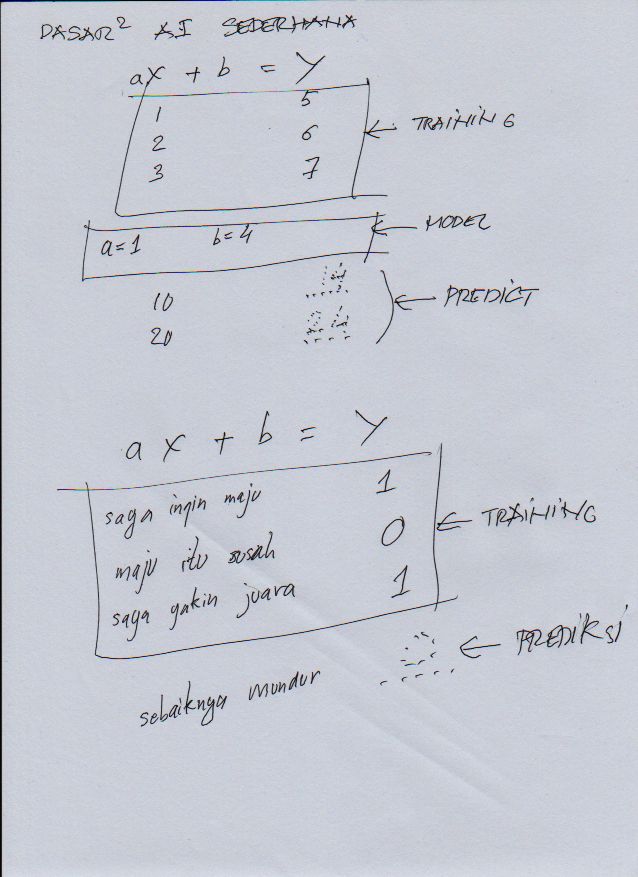 DASAR² AI SEDERHANA
ax + b = Y
1 5 ← TRAINING
2 6
3 7
a=1 b=4 ← MODEL
10 14 ← PREDICT
20 24
ax + b = Y
saya ingin maju 1
maju itu susah 0 ← TRAINING
saya yakin juara 1
sebaiknya mundur ← PREDIKSI